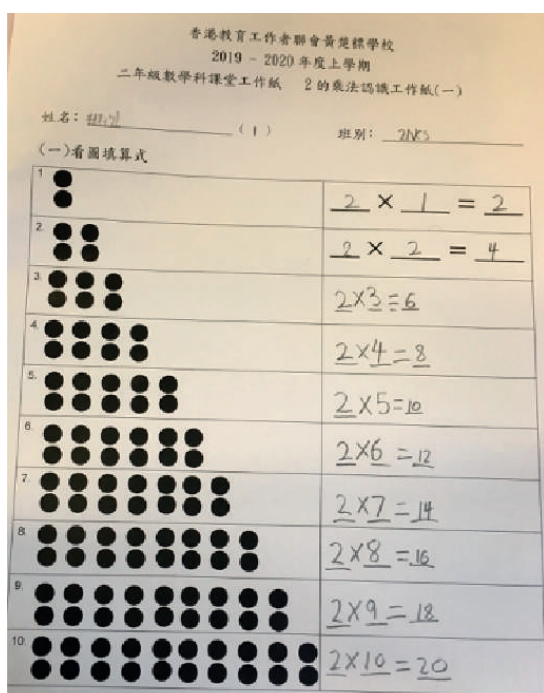 香港教育工作者聯會黃楚標學校
2019 - 2020 年度上學期
二年級數學科課堂工作紙 2 的乘法認識工作紙(一)
姓名: ( 1 ) 班別:
(一)看圖填算式
1 2 × 1 = 2
2. 2 × 2 = 4
3. 2×3=6
4. 2×4=8
5. 2×5=10
6. 2×6=12
7. 2×7=14
8. 2×8=16
9. 2×9=18
10. 2×10=20